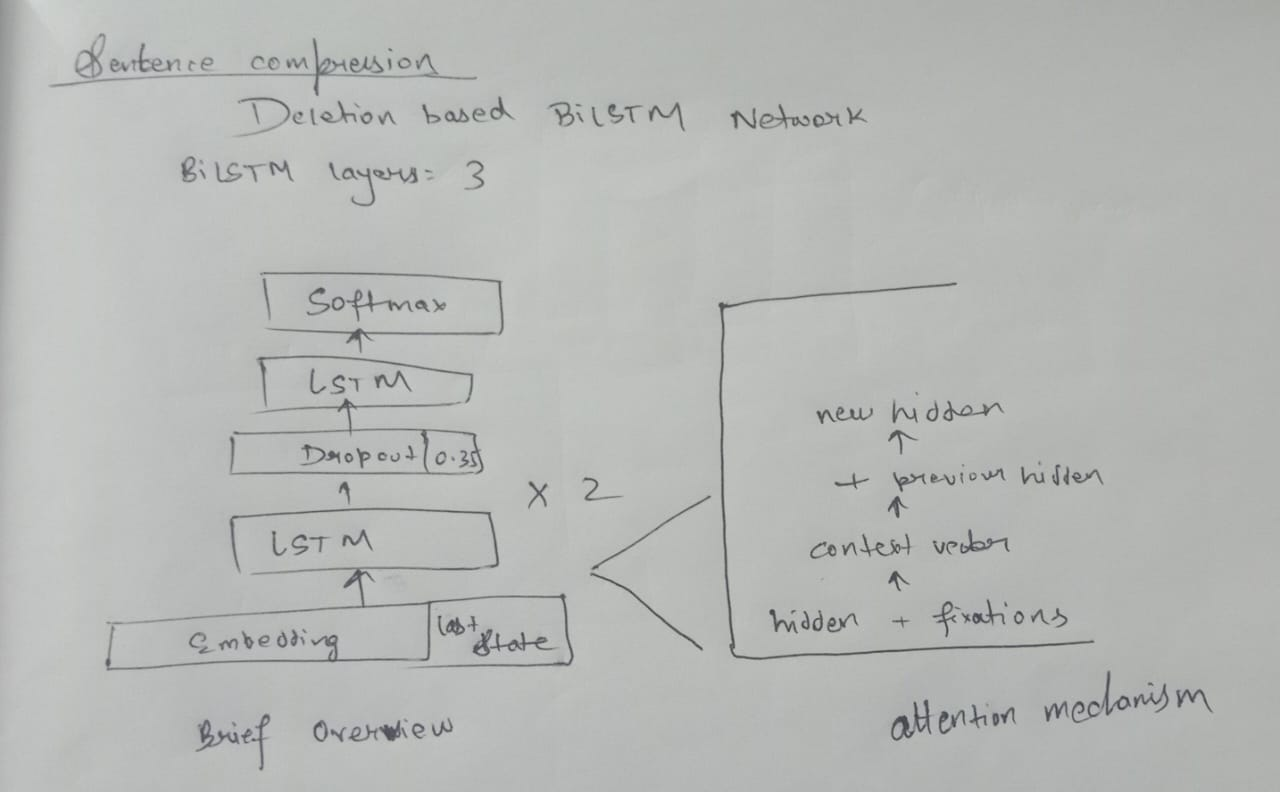 Sentence compression
Deletion based BiLSTM Network
BiLSTM layers= 3
Softmax
LSTM
Dropout 0.35
x 2
LSTM
Embedding last state
Brief Overview
new hidden
+ previous hidden
context vector
hidden + fixations
attention mechanism